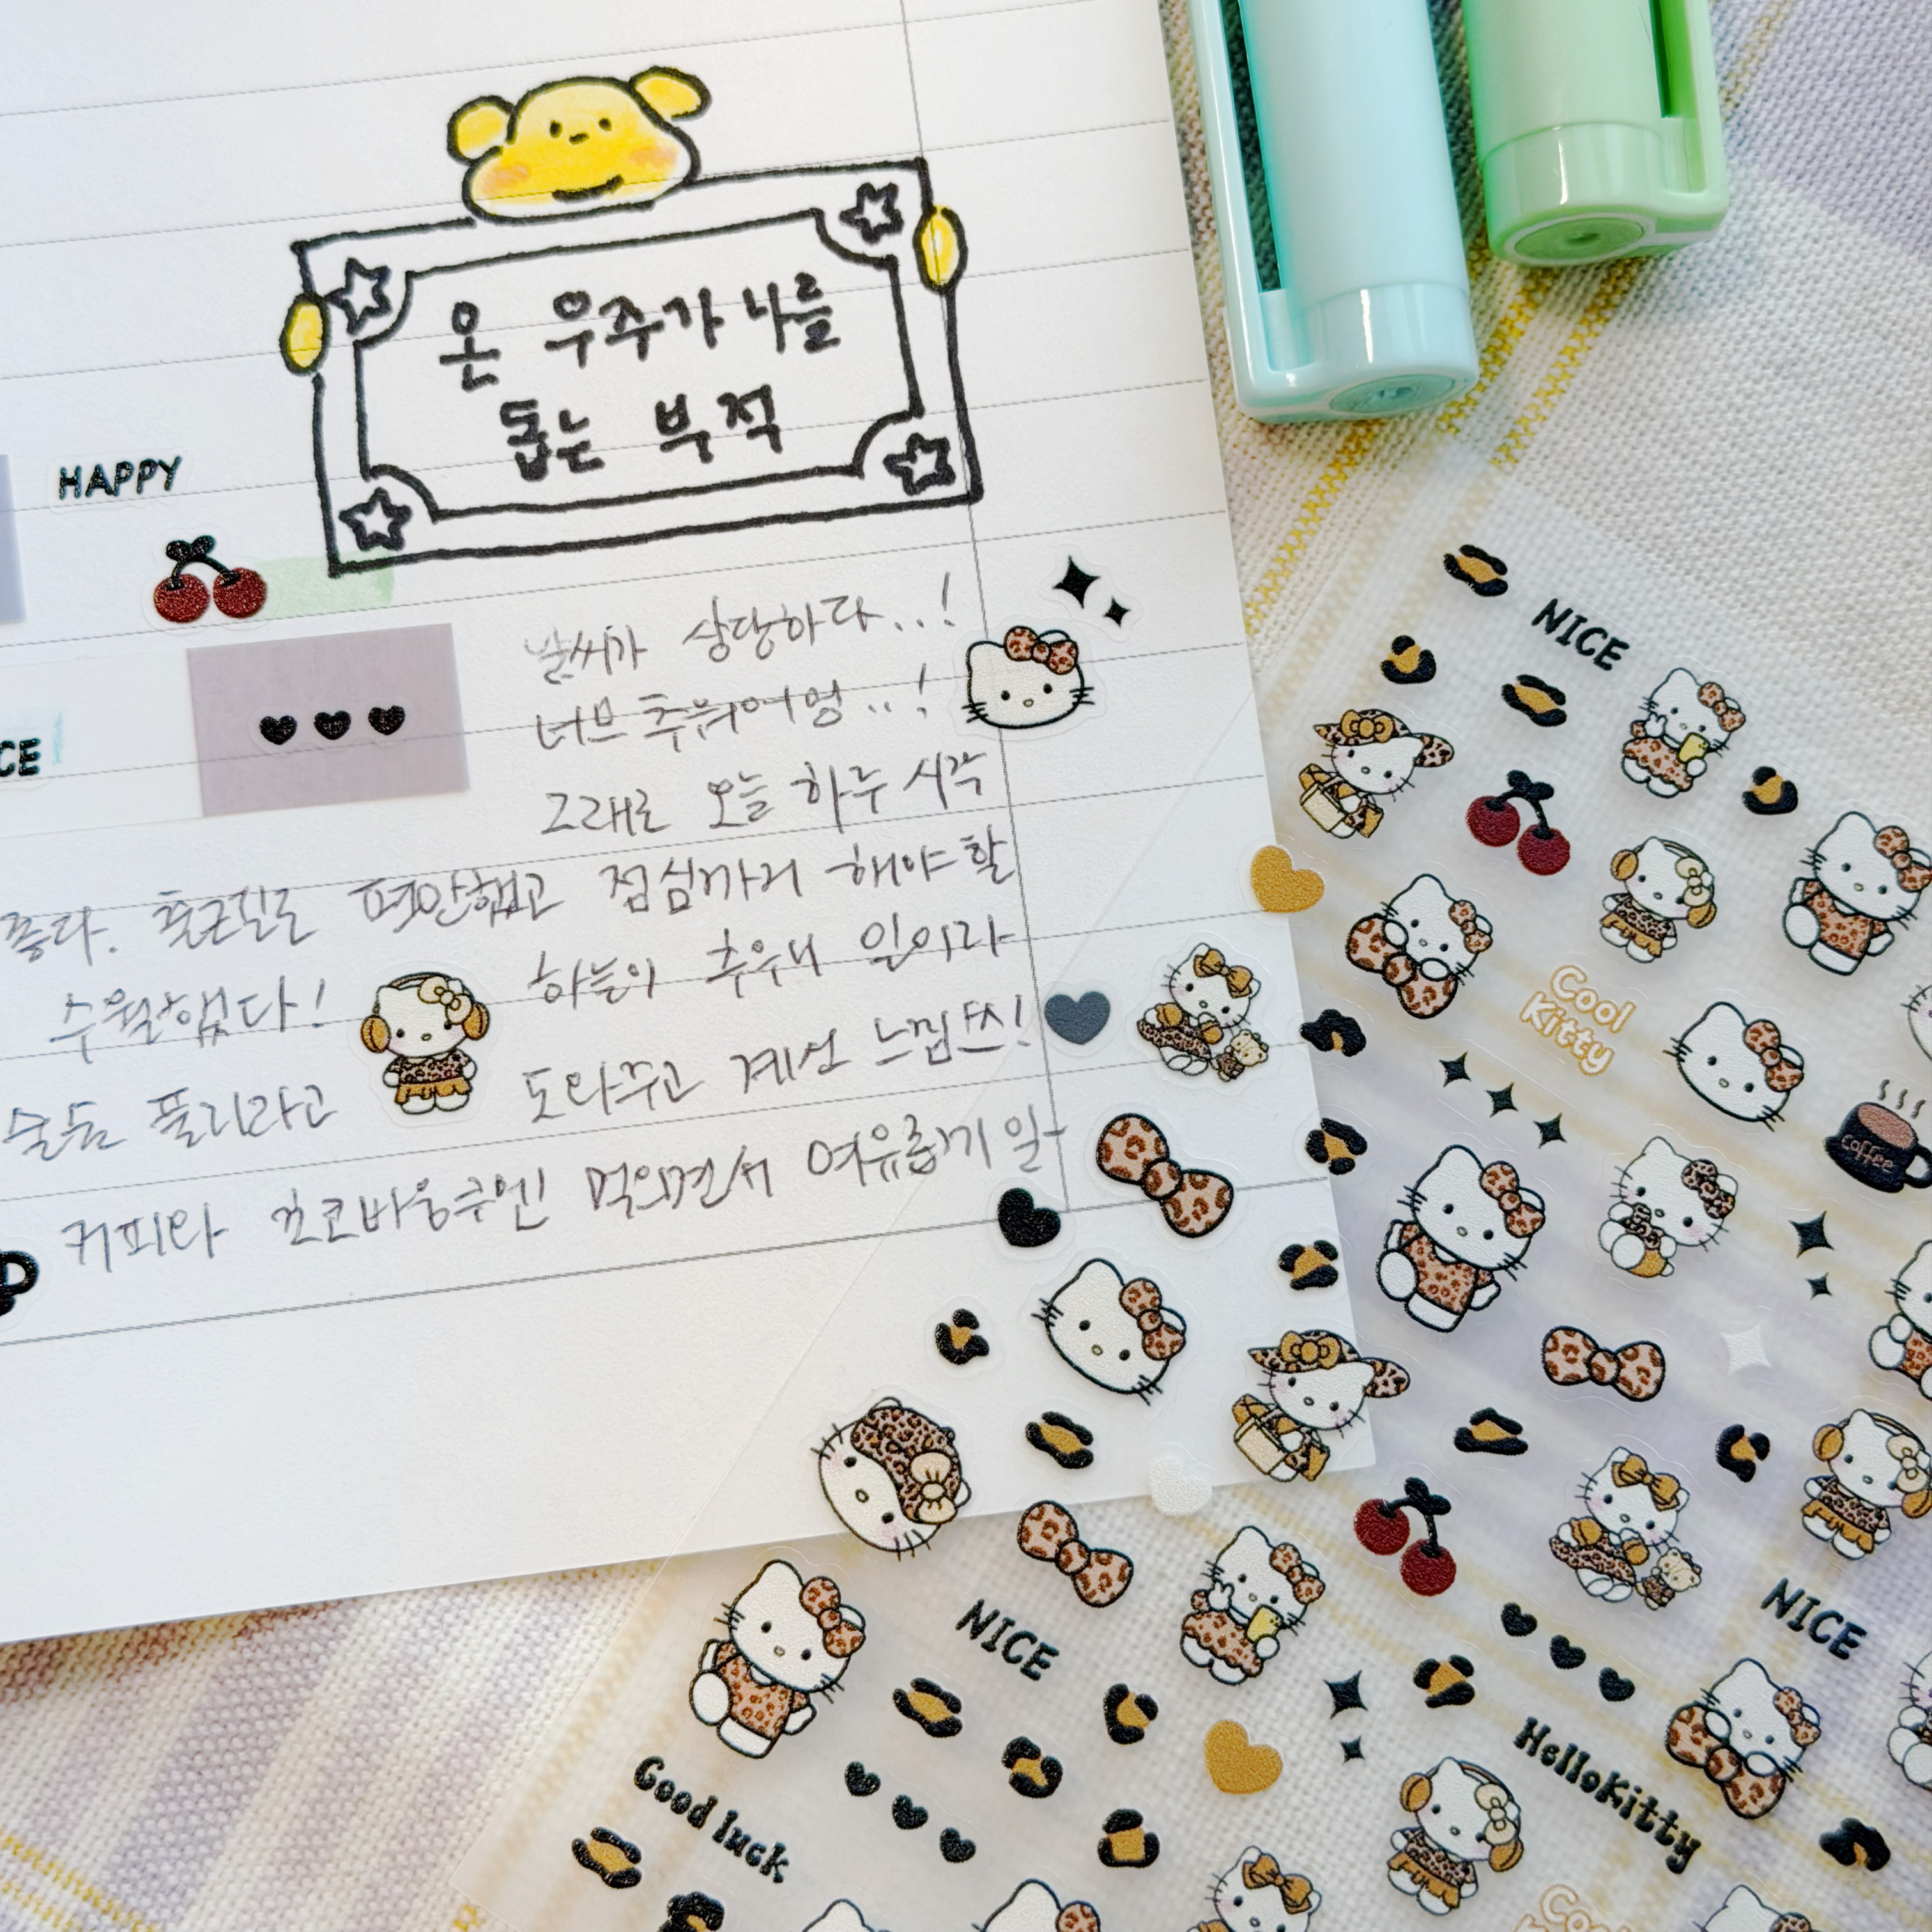 온 우주가 나를
돕는 부적
HAPPY
날씨가 상당하다..!
너므 추워어엉..!
그래로 오늘 하루 시작
좋다. 출근길로 평안했고 점심까지 해야 할
수월했다! 하늘이 추우니 일이라
술등 풀리라고 도와주고 계션 느낌쓰!
커피와 초코바움쿠엔 먹으면서 여유롭게 일
NICE
Cool
Kitty
coffee
NICE
NICE
Good luck
HelloKitty